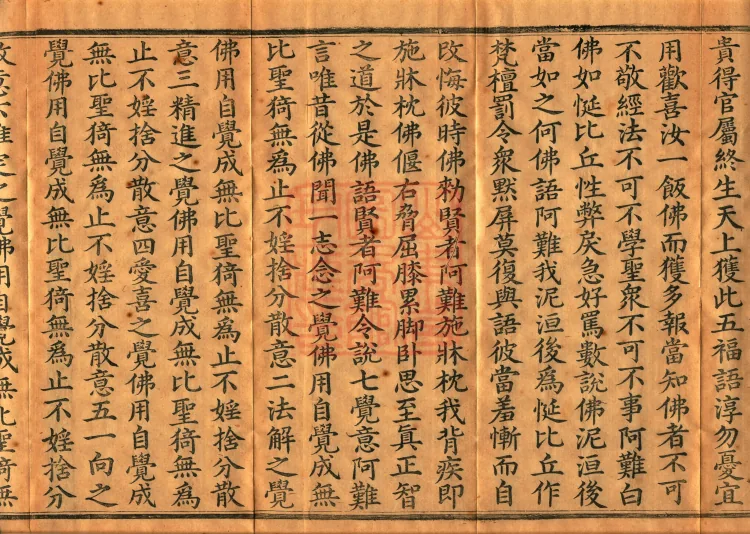 貴得官屬終生天上獲此五福語淳勿憂宜
用歡喜汝一飯佛而獲多報當知佛者不可
不敬經法不可不學聖衆不可不事阿難白
佛如㤺比丘性弊戾急好罵數說佛泥洹後
當如之何佛語阿難我泥洹後為㤺比丘作
梵檀罰令衆默屏莫復與語彼當羞慚而自
改悔彼時佛勑賢者阿難施牀枕我背疾即
施牀枕佛偃右脅屈膝累脚卧思至真正智
之道於是佛語賢者阿難令說七覺意阿難
言唯昔從佛聞一志念之覺佛用自覺成無
比聖猗無為止不婬捨分散意二法解之覺
佛用自覺成無比聖猗無為止不婬捨分散
意三精進之覺佛用自覺成無比聖猗無為
止不婬捨分散意四愛喜之覺佛用自覺成
無比聖猗無為止不婬捨分散意五一向之
覺佛用自覺成無比聖猗無為止不婬捨分